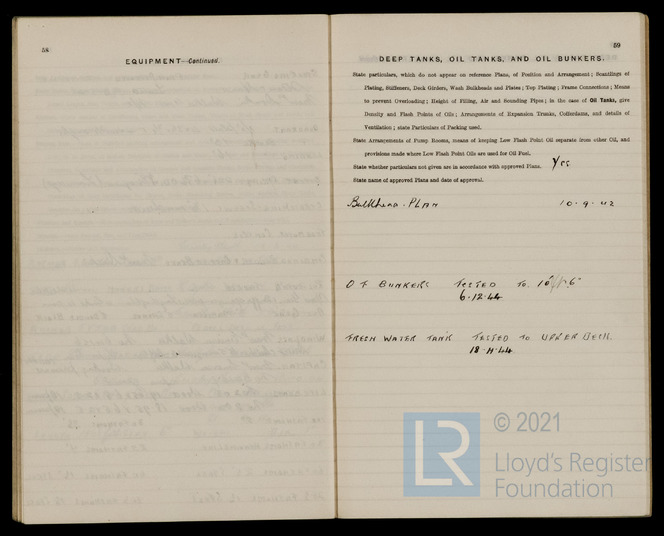 58
EQUIPMENT—Continued.
59
DEEP TANKS, OIL TANKS, AND OIL BUNKERS.
State particulars, which do not appear on reference Plans, of Position and Arrangement; Scantlings of
Plating, Stiffeners, Deck Girders, Wash Bulkheads and Plates; Top Plating; Frame Connections; Means
to prevent Overloading; Height of Filling, Air and Sounding Pipes; in the case of Oil Tanks, give
Density and Flash Points of Oils; Arrangements of Expansion Trunks, Cofferdams, and details of
Ventilation; state Particulars of Packing used.
State Arrangements of Pump Rooms, means of keeping Low Flash Point Oil separate from other Oil, and
provisions made where Low Flash Point Oils are used for Oil Fuel.
State whether particulars not given are in accordance with approved Plans. Yes
State name of approved Plans and date of approval.
Bulkhead. PLAN 10.9.42
O F BUNKERS TESTED TO
6.12.44
FRESH WATER TANK TESTED TO UPPER DECK.
18.11.44
LR
© 2021
Lloyd's Register
Foundation